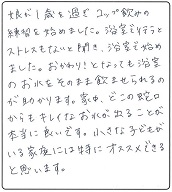 娘が1歳を過ぎコップ飲みの
練習を始めました。浴室で行うと
ストレスもないと聞き、浴室で始め
ました。おかわり！となっても浴室
のお水をそのまま飲ませられるの
が助かります。家中、どこの蛇口
からもキレイなお水が出ることが
本当に良いです。小さな子どもが
いる家庭には特にオススメできる
と思います。